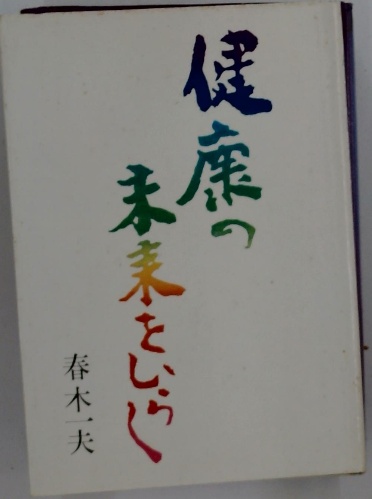 健康の
未来をひらく
春木一夫